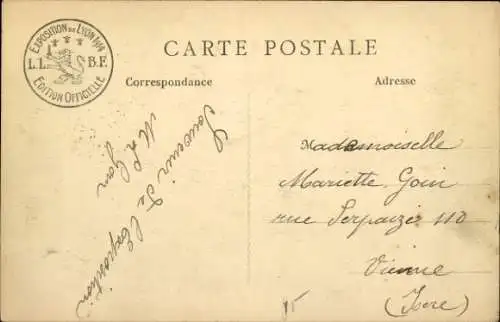 EXPOSITION DE LYON 1914
L.L. B.F.
EDITION OFFICIELLE
CARTE POSTALE
Correspondance
Adresse
Souvenir de l'Exposition
Mademoiselle
Mariette Goin
rue Serpaize 110
Vienne
(Isere)